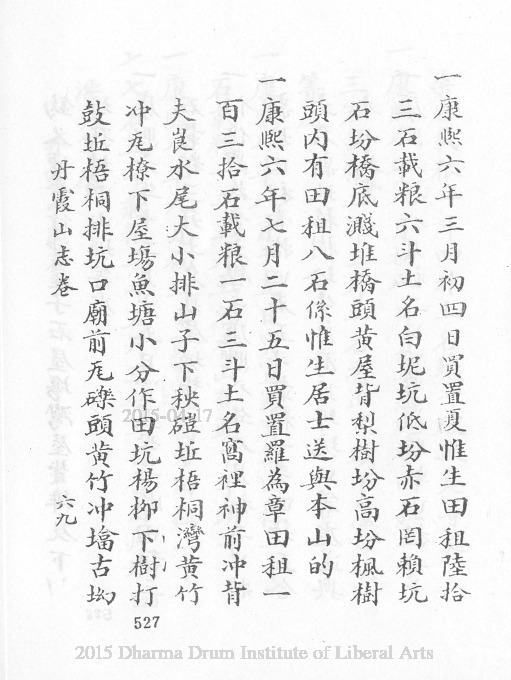 一康熙六年三月初四日買置夏惟生田租陸拾
三石載粮六斗土名白坭坑低坋赤石罔賴坑
石坋橋底濺堆橋頭黄屋背梨樹坋高坋楓樹
頭内有田租八石係惟生居士送與本山的
一康熙六年七月二十五日買置羅為章田租一
百三拾石載粮一石三斗土名窩裡神前冲背
夫崀水尾大小排山子下秋磑坵梧桐灣黄竹
冲凥橑下屋塲魚塘小分作田坑楊柳下樹打
鼔坵梧桐排坑口廟前凥礫頭黄竹冲墖古坳
丹霞山志卷 六九
527
2015-04-17
2015 Dharma Drum Institute of Liberal Arts